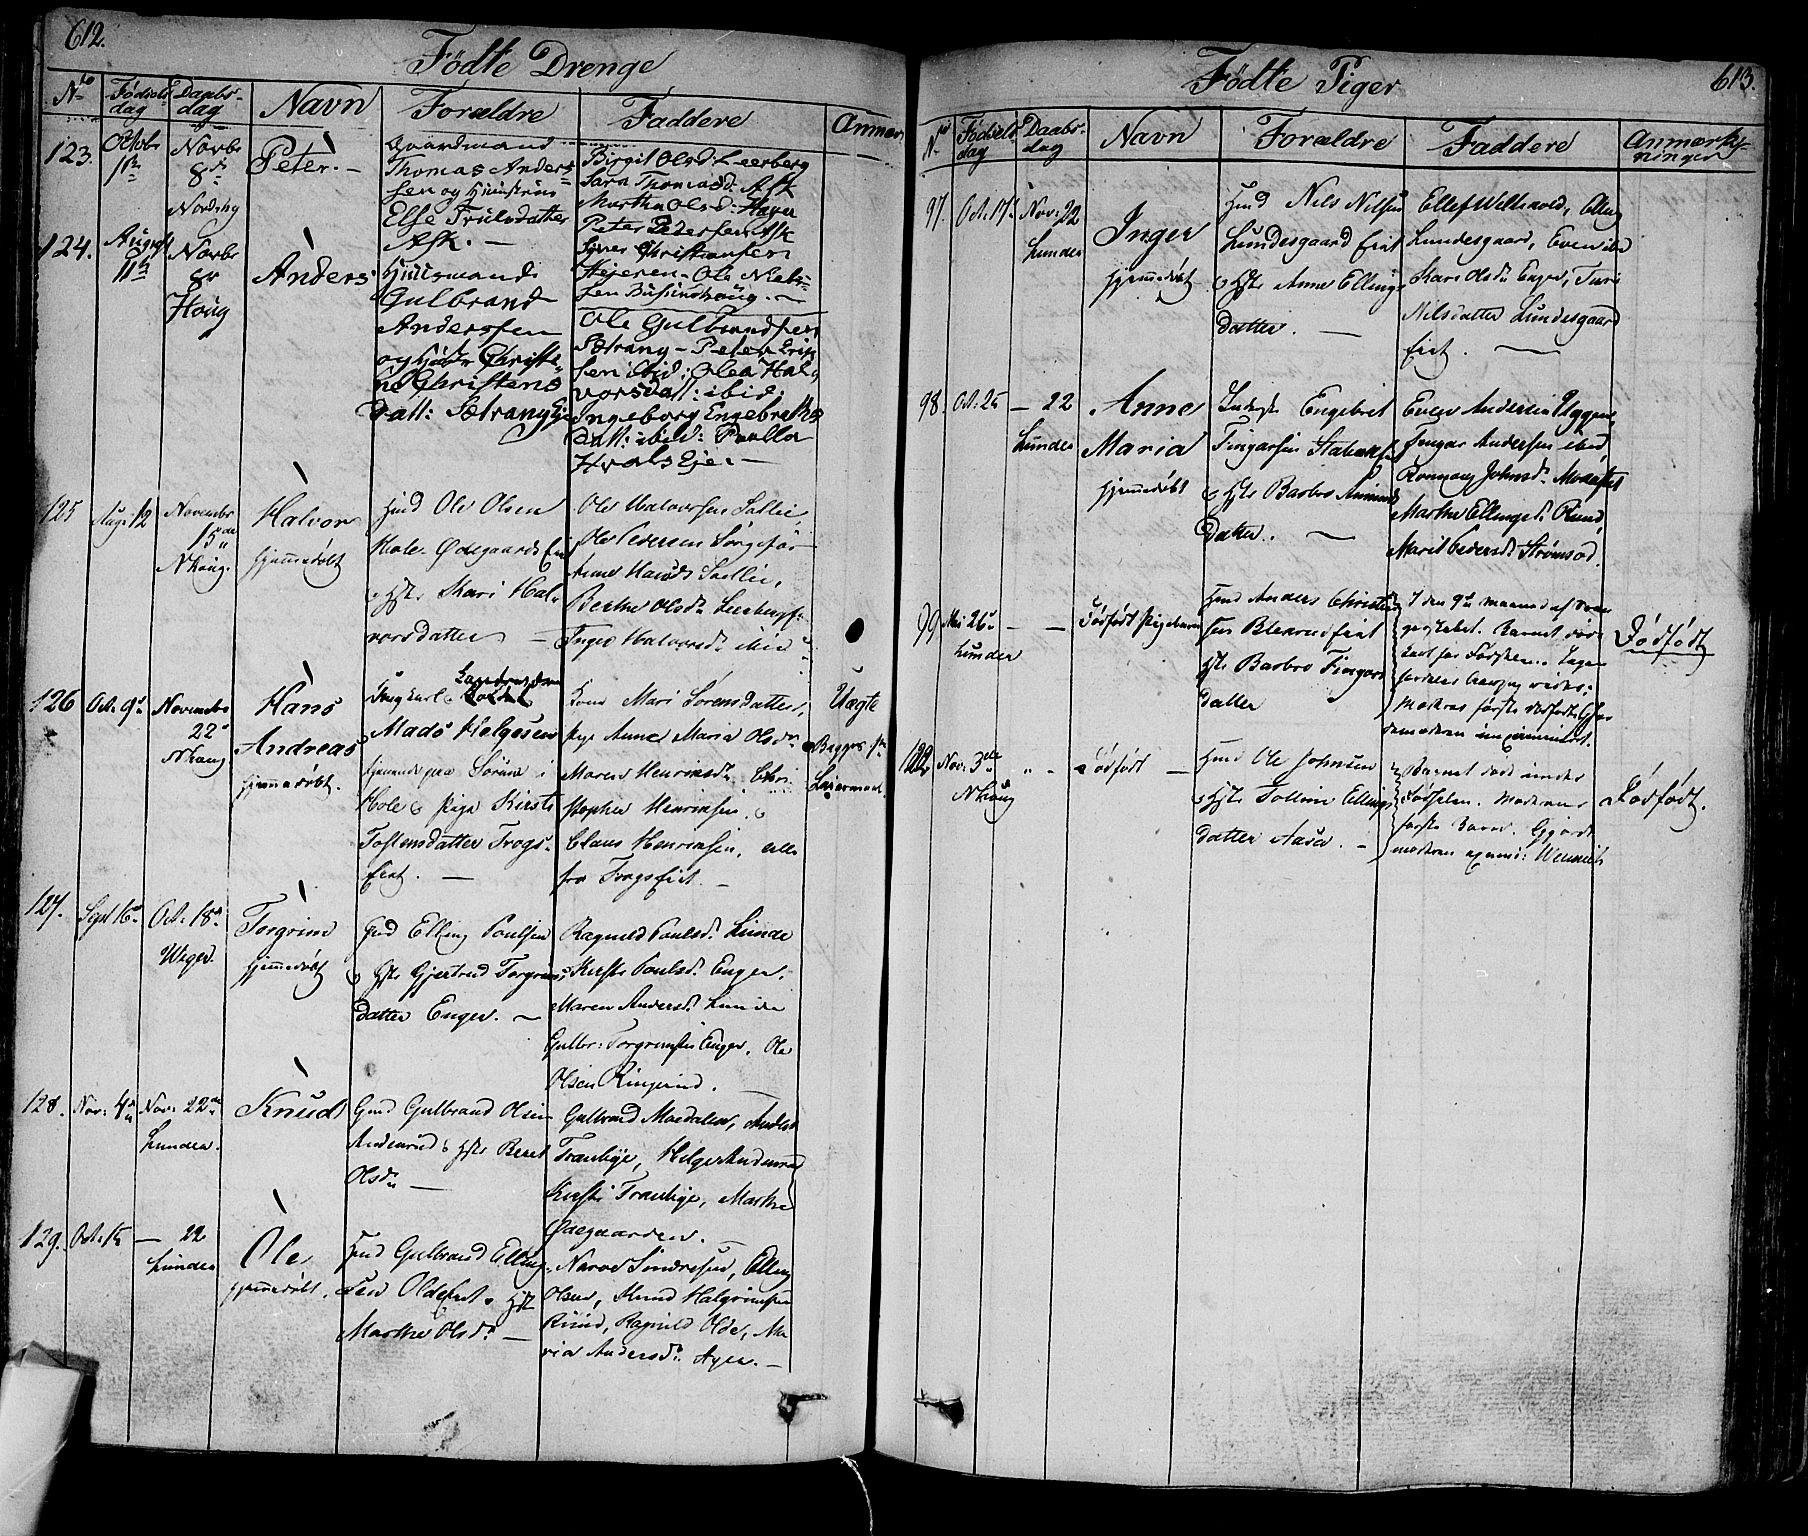 612.
Födte Drenge
No
Födsels-
dag
Daabs-
dag
Navn
Forældre
Faddere
Anmær
123.
Octobr
1ste
Novbr
8de
Nordrhg
Peter. —
Gaardmand
Thomas Anders-
sen og Hustrue
Else Trulsdatter
Ask. —
Birgit Olsd: Leerberg
Sara Thomasd: Ask
Martha Olsd: Hayer
Peter Pedersen Ask
Iver Christiansen
Stejeren - Ole Niels-
sen Busundhoug. —
124.
August
11te
Novbr
8de
Houg
Anders
Huusmand
Gulbrand
Anderssen
og Hustr Christi-
ne Christens
datt: Sætrang Eje
Ole Gulbrandsen
Sætrang - Peter Erik
sen ibid: Olea Hal-
vorsdatt: ibid:
Ingeborg Engebreths
datt: ibid: Paul
Hvals Eje. —
125
Aug: 12
Novembr
15de
NHoug.
Halvor
hjemmedøbt
Hmd Ole Olsen
Hole Ødegaards Eiet
& Hst: Kari Hal-
vorsdatter —
Ole Halvorsen Sollie,
Ole Pedersen
Anne Hansd: Sollie,
Berthe Olsd:
Inger Halvorsd: ibid
126
Oct. 9de
Novembr
22de
NHoug
Hans
Andreas
hjemmedøbt.
Ungkarl
Mads Helgesen
hjemme paa i
Hole & Pige Kirsti
Tostensdatter Trogs-
eiet. —
Kone Mari Sørensdatter,
Pige Anne Maria Olsdr
Maren Henriksd: Chri
stopher Henriksen, &
Claus Henriksen, alle
fra Trogseiet. —
Uægte
Begges 1ste
Leiermaal.
127.
Sept 16de
Oct: 18de
Viger
Torgrim
hjemmedøbt
Gmd Elling Paulsen
& Hst: Gjertrud Torgrims
datter Enger. —
Ragnild Paulsd: Lunde
Kirsti Paulsd: Enger,
Maren Andersd: Lunde
Gulbr: Torgrimsen Enger, Ole
Olsen Ringerud. —
128.
Nov: 4de
Nov: 22de
Lunder.
Knud
Gmd Gulbrand Olsen
Anderud & Hst: Beret
Olsdr —
Gulbrand Moedalen, Anders
Tranbye, Helge Anderud
Kirsti Tranbye, Marthe
Ødegaarden. —
129.
Oct: 15
— 22
Lunder
Ole
hjemmedøbt.
Hmd Gulbrand Elling-
sen Oldeeiet & Hst
Marthe Olsdr —
Narve Sindresen, Elling
Olsen, Knud Halgrimsen
Ruud, Ragnild Olde, Ma-
ria Andersdr —
613.
Födte Piger
No
Födsels-
dag
Daabs-
dag
Navn
Forældre
Faddere
Anmærk-
ninger
97.
Oct. 17de
Nov: 22
Lunder
Inger
hjemmedøbt
Hmd Nils Nilsen
Lundesgaard Eiet
& Hst: Anne Ellings-
datter. —
Ellef Velthvold, Elling
Lundesgaard, Even ibid
Kari Olsdr Enger, Turi
Nilsdatter Lundesgaard
Eiet. —
98.
Oct: 25
— 22
Lunder
Anne
Maria
hjemmedøbt
Inderst Engebret
Fingarsen
& Hst: Barbro Amunds
datter. —
Even Andersen
Fingar Andersen ibid
Ronnaug Johnsd:
Marthe Ellingsd: Ruud
Marit Pedersd: Strømsød.
99
Mai 26de
Lunder
— —
Dødfødt Pigebarn
Hmd Anders Christen
sen eiet
Hst: Barbro Fingars
datter
I den 9de Maaned af Svan
gerskabet. Barnet død
kort før Fødselen. Ingen
Moderens første dødfødte. Gjor
demoderen Uexamineret.
Dödfödt
100
Nov: 3die
NHoug
" "
Dödfødt —
Hmd Ole Johnsen
& Hst: Ellings
datter Aasa. —
Barnet død under
Fødselen. Moderens
første Barn. Gjorde
moderen examineret:
Dödfödt.